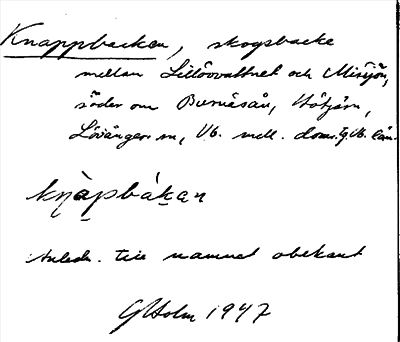 Knappbacken, skogsbacke
mellan Lillåvattnet och Missjön,
söder om Bureåsån, Hötjärn,
Lövångers sn, Vb. mell. doms. g. Vb. län.
kn̥àpbákan
Anledn. till namnet obekant
GHolm 1947